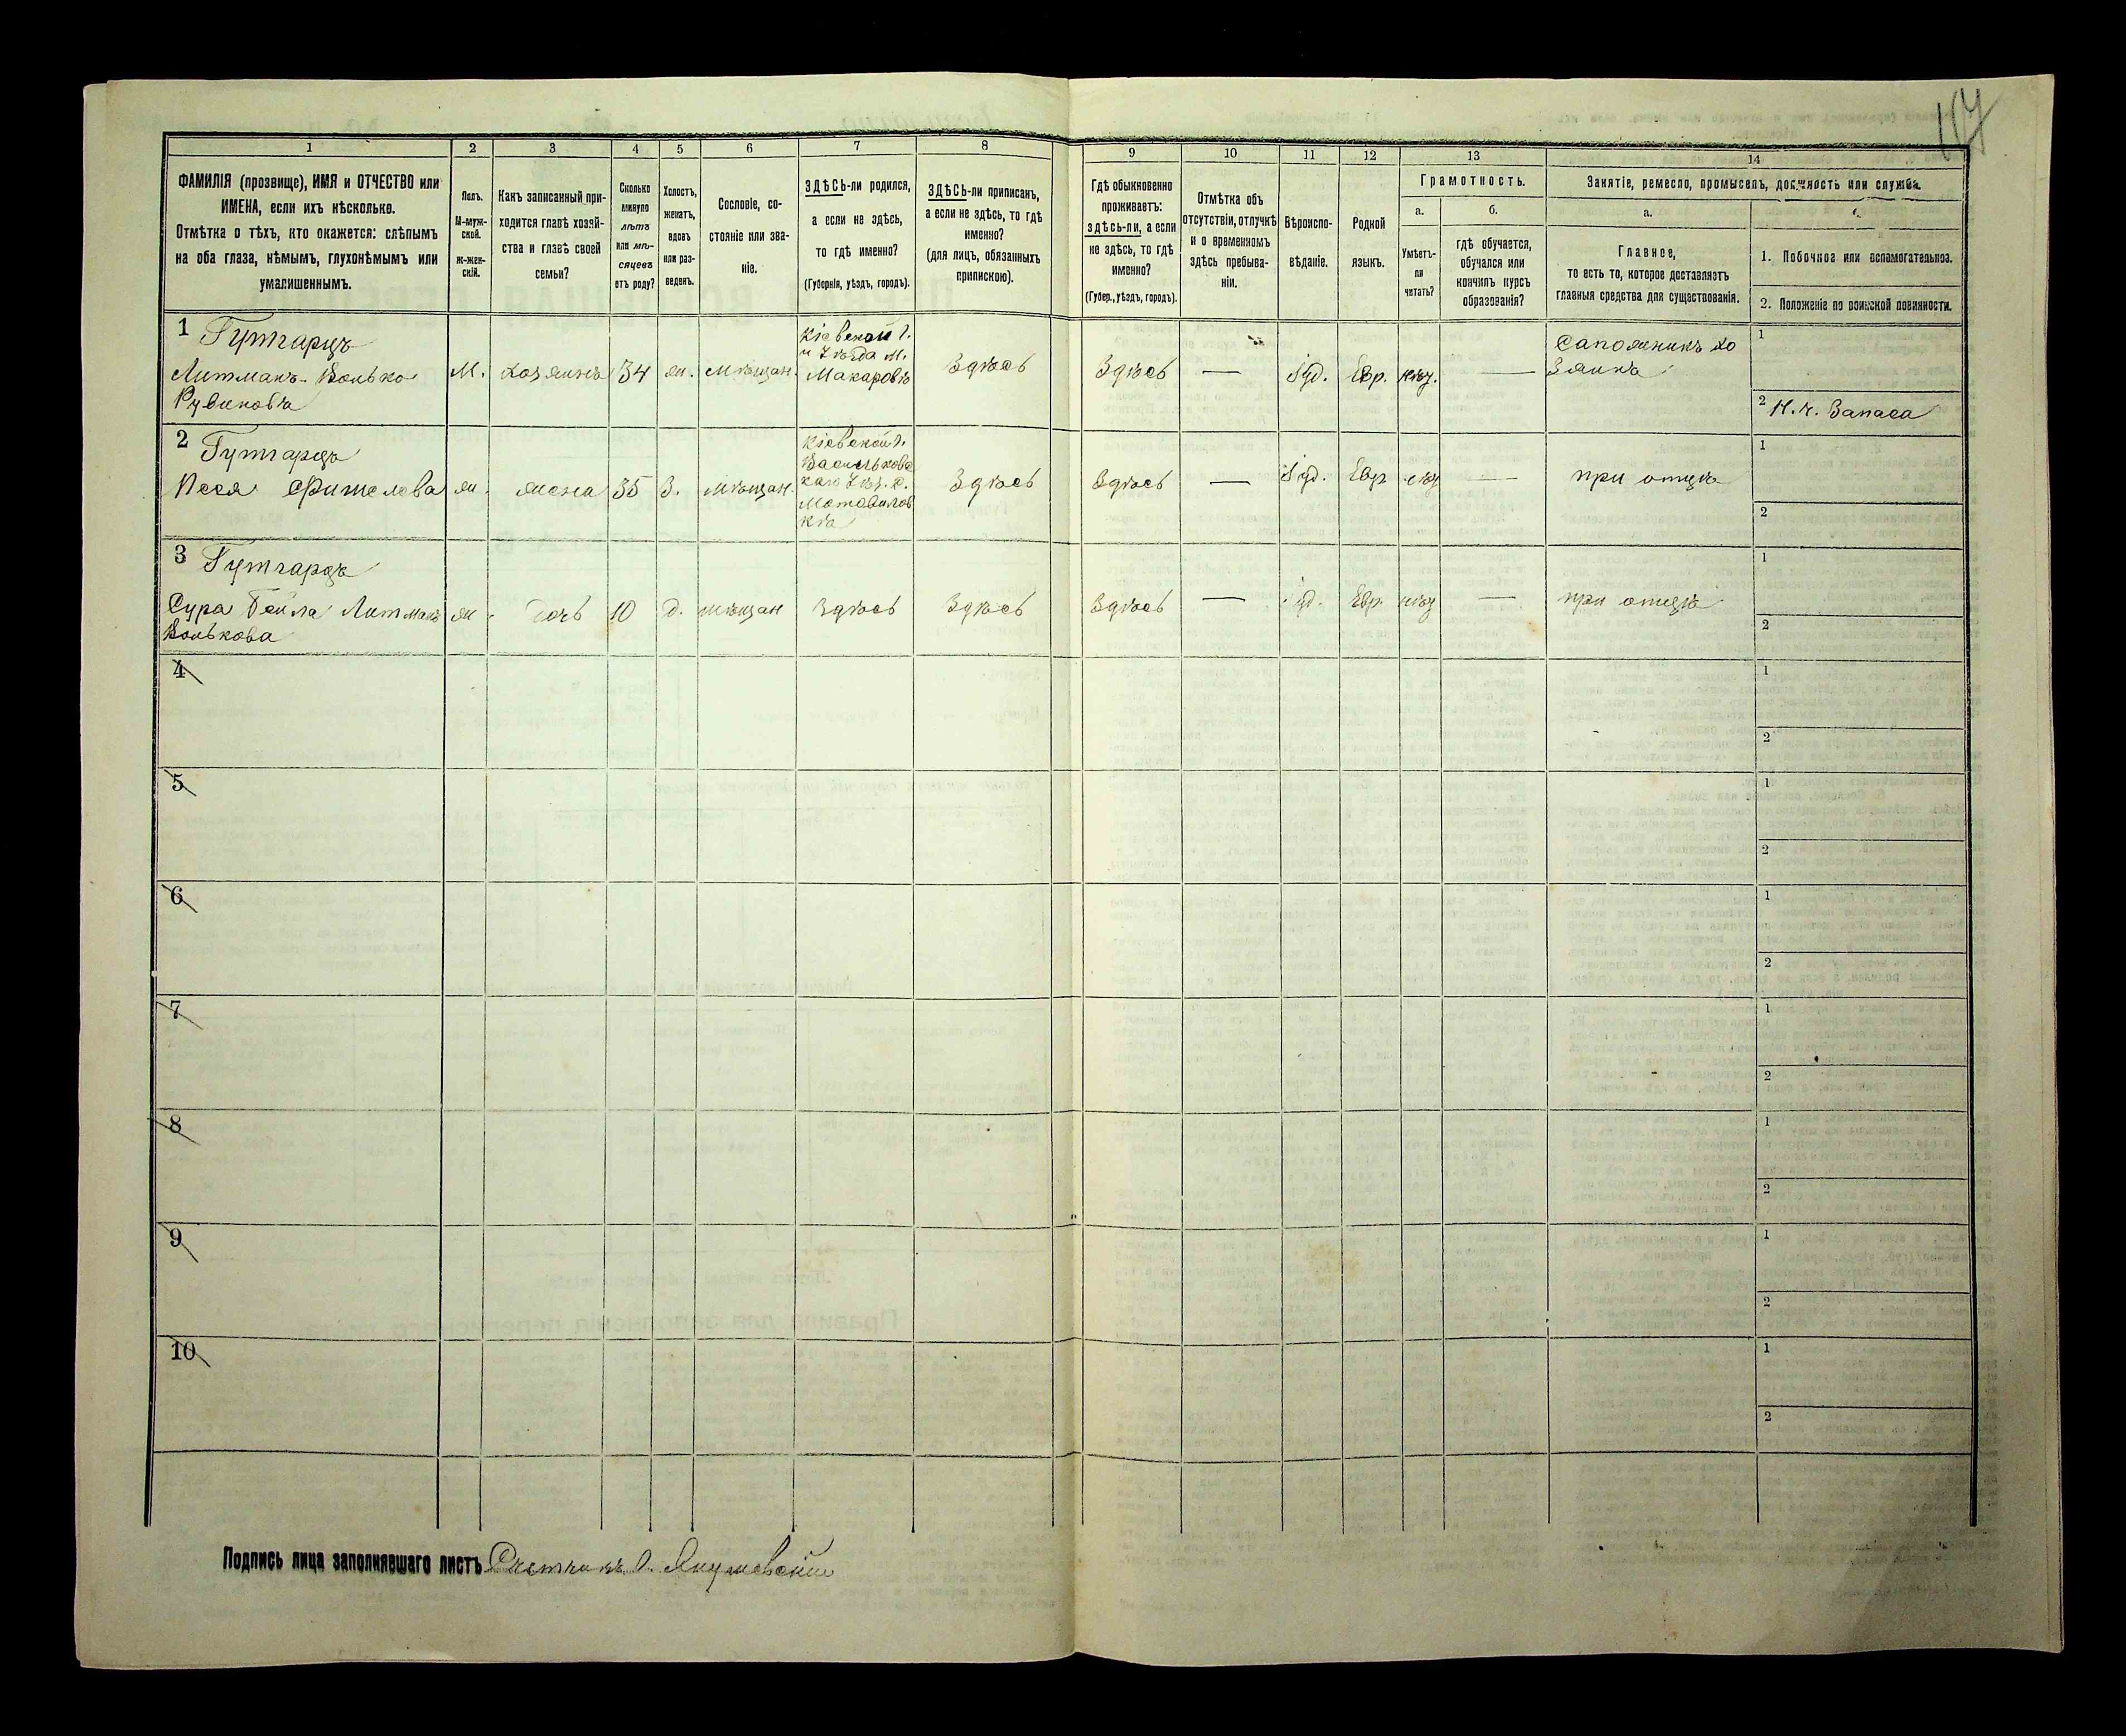 117
1
2
3
4
5
6
7
8
9
10
11
12
13
14
ФАМИЛІЯ (прозвище), ИМЯ и ОТЧЕСТВО или
ИМЕНА, если ихъ нѣсколько.
Отмѣтка о тѣхъ, кто окажется: слѣпымъ
на оба глаза, нѣмымъ, глухонѣмымъ или
умалишеннымъ.
Полъ.
М-муж-
ской.
Ж-жен-
скій.
Какъ записанный при-
ходится главѣ хозяй-
ства и главѣ своей
семьи?
Сколько
минуло
лѣтъ
или мѣ-
сяцевъ
отъ роду?
Холостъ,
женатъ,
вдовъ
или раз-
веденъ.
Сословіе, со-
стояніе или зва-
ніе.
ЗДѢСЬ-ли родился,
а если не здѣсь,
то гдѣ именно?
(Губернія, уѣздъ, городъ).
ЗДѢСЬ-ли приписанъ,
а если не здѣсь, то гдѣ
именно?
(для лицъ, обязанныхъ
припискою).
Гдѣ обыкновенно
проживаетъ:
здѣсь-ли, а если
не здѣсь, то гдѣ
именно?
(Губер., уѣздъ, городъ).
Отмѣтка объ
отсутствіи, отлучкѣ
и о временномъ
здѣсь пребыва-
ніи.
Вѣроиспо-
вѣданіе.
Родной
языкъ.
Грамотность.
а.
Умѣетъ-
ли
читать?
б.
гдѣ обучается,
обучался или
кончилъ курсъ
образованія?
Занятіе, ремесло, промыселъ, должность или служба.
а.
Главное,
то есть то, которое доставляетъ
главныя средства для существованія.
1. Побочное или вспомогательное.
2. Положеніе по воинской повинности.
1 Гутгарцъ
Литманъ-Волько
Рувиновъ
М.
хозяинъ
34
ж.
мѣщан.
Кіевской г.
и уѣзда м.
Макаровъ
Здѣсь
Здѣсь
—
Іуд.
Евр.
нѣт.
—
Сапожникъ хо
зяинъ
1
2 Н.ч. Запаса
2 Гутгарцъ
Песя Фишелева
ж.
жена
35
З.
мѣщан.
Кіевской г.
Васильковс
каго уѣз. с.
Мотовилов
ка
Здѣсь
Здѣсь
—
Іуд.
Евр
нѣт
—
при отцѣ
1
2
3 Гутгарцъ
Сура Бейла Литманъ
Волькова
ж.
дочь
10
д.
мѣщан
Здѣсь
Здѣсь
Здѣсь
—
Іуд.
Евр.
нѣт
—
при отцѣ
1
2
4
1
2
5
1
2
6
1
2
7
1
2
8
1
2
9
1
2
10
1
2
Подпись лица заполнявшаго листъ Счетчикъ